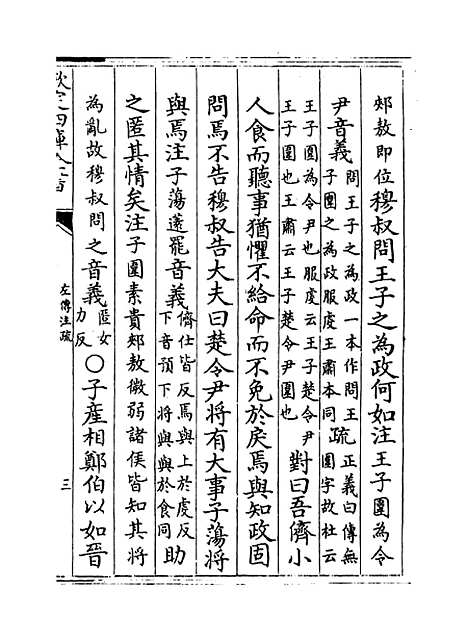 郟敖即位穆叔問王子之為政何如注王子圍為令
尹音義問王子之為政一本作問王
子圍之為政服虔王肅本同疏正義曰傳無
圍字故杜云
王子圍為令尹也服虔云王子楚令尹
王子圍也王肅云王子楚令尹圍也對曰吾儕小
人食而聽事猶懼不給命而不免於戾焉與知政固
問焉不告穆叔告大夫曰楚令尹將有大事子蕩將
與焉注子蕩薳罷音義儕仕皆反焉與上於虔反
下音預下將與與於食同助
之匿其情矣注子圍素貴郟敖微弱諸侯皆知其將
為亂故穆叔問之音義匿女
力反○子產相鄭伯以如晉
欽定四庫全書
左傳注疏
三